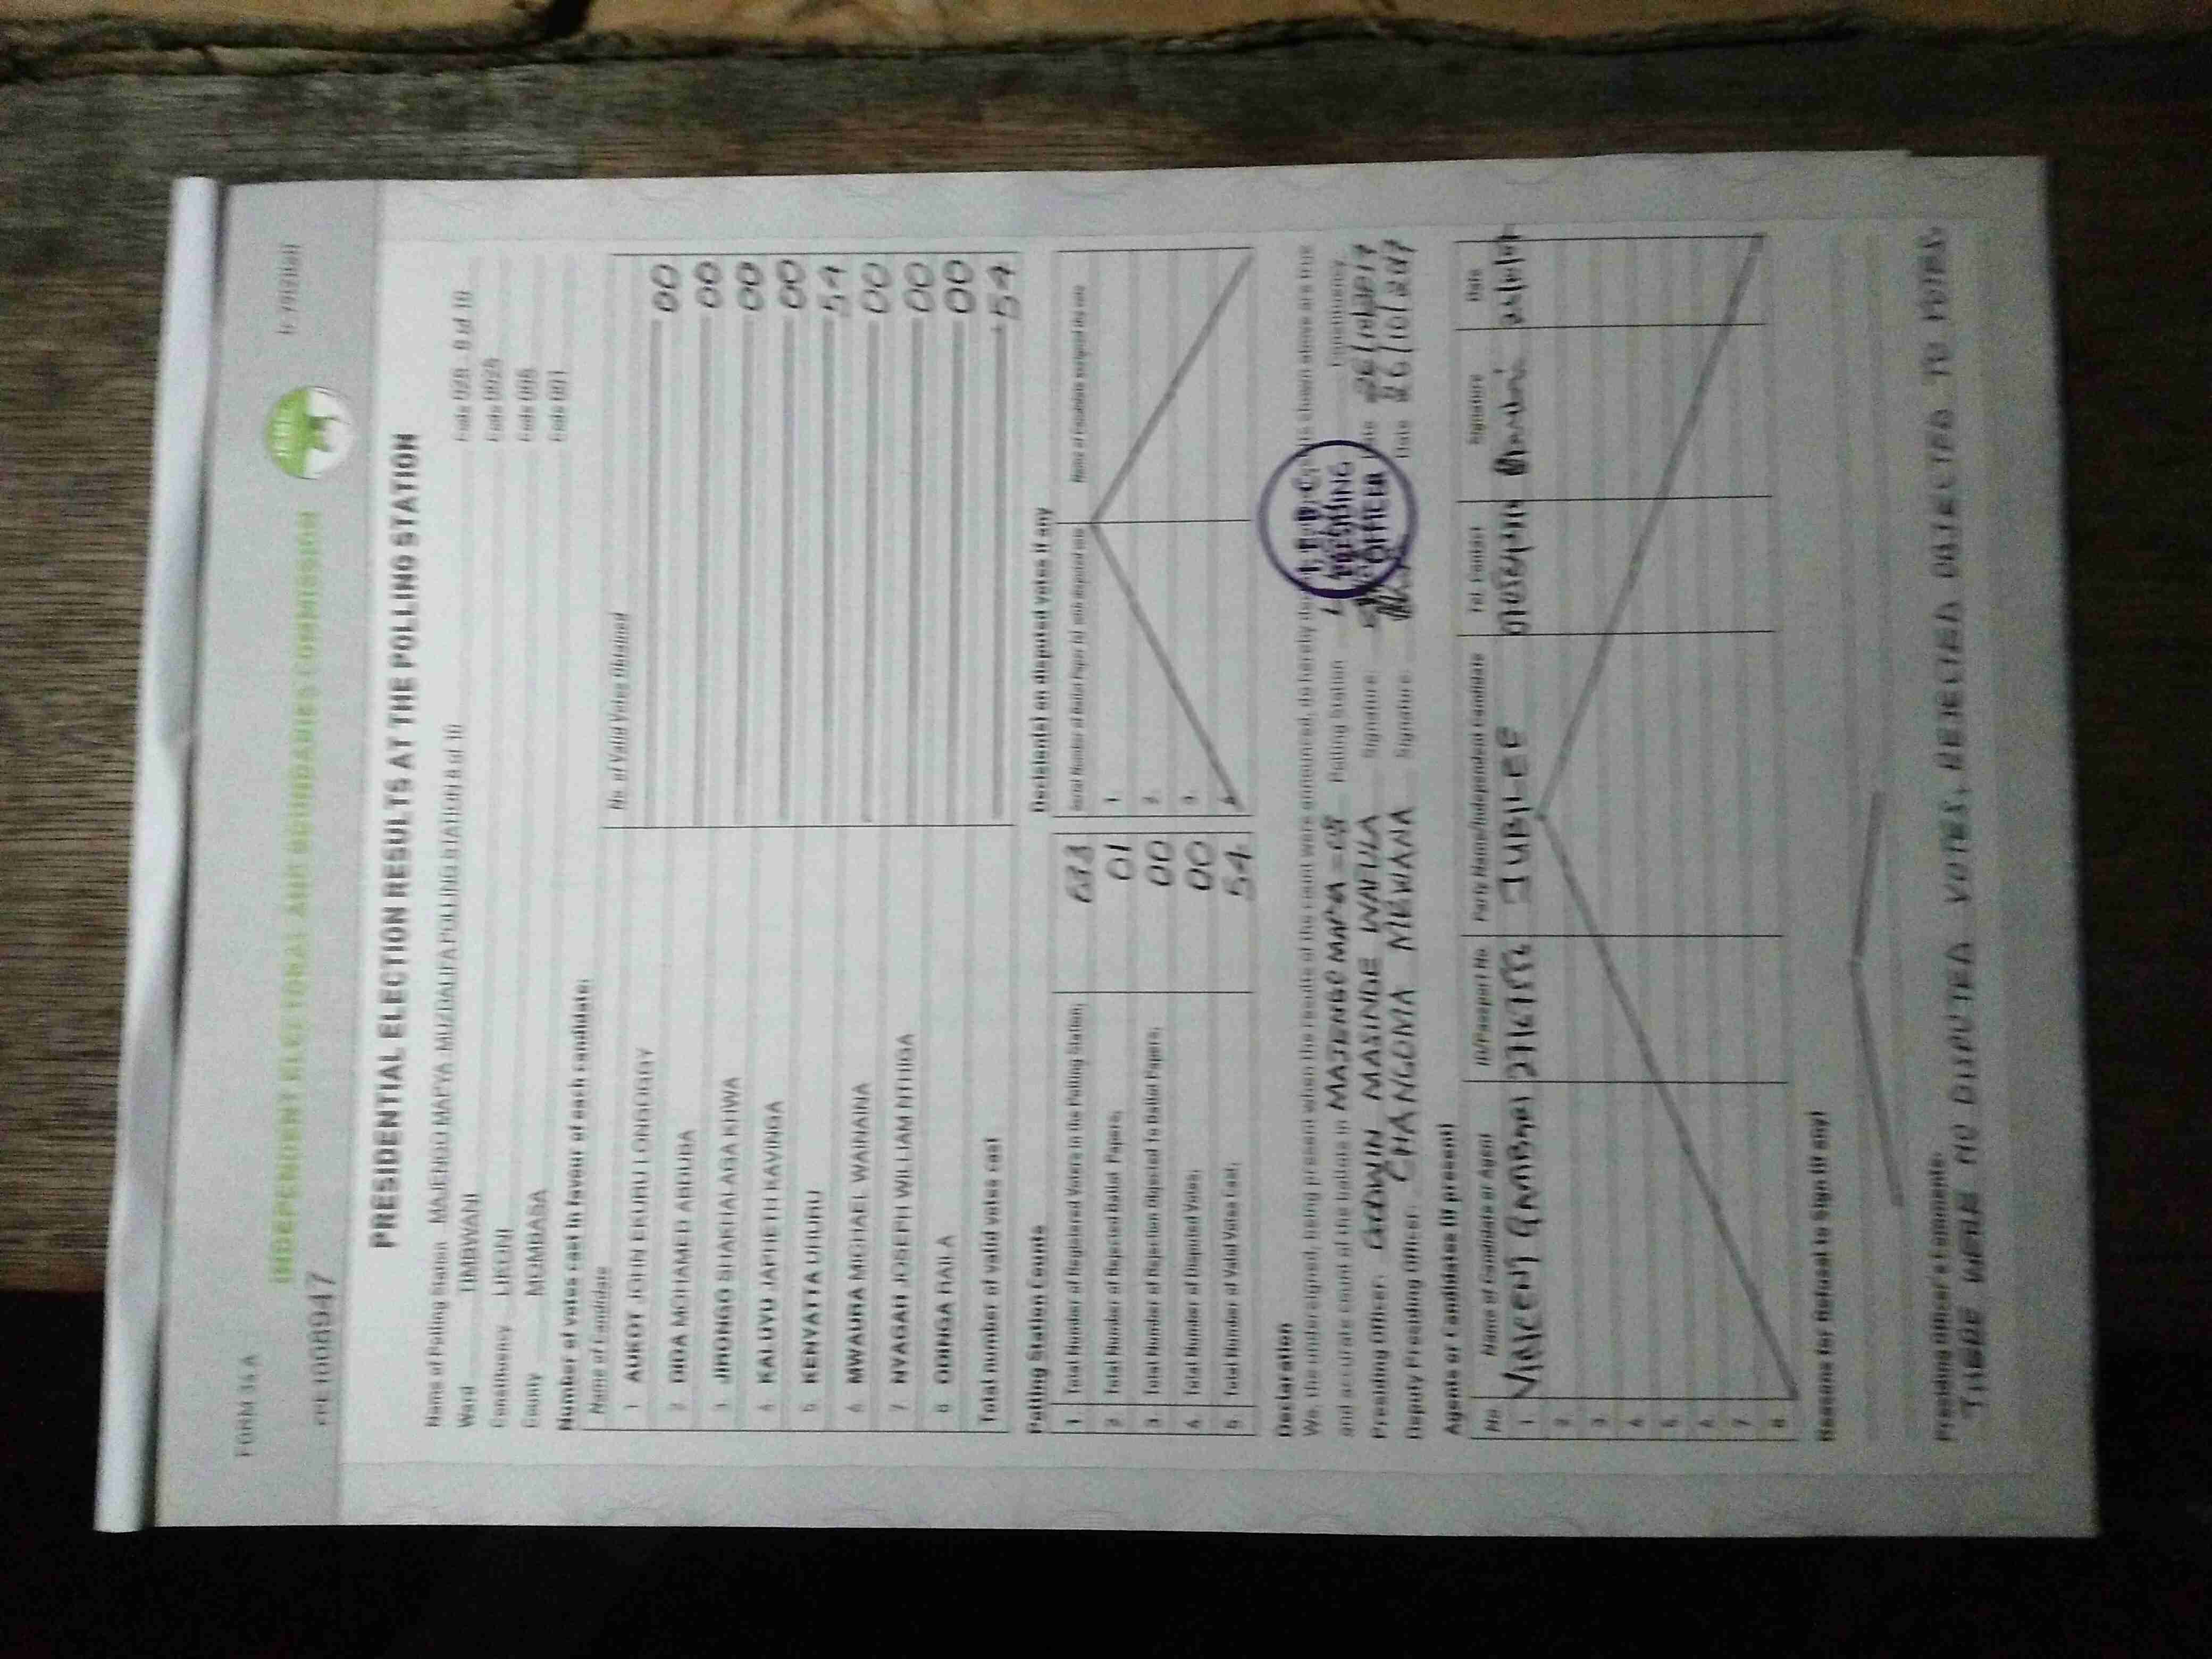 FORM 34A
INDEPENDENT ELECTORAL AND BOUNDARIES COMMISSION
PRESIDENTIAL ELECTION RESULTS AT THE POLLING STATION
Name of Polling Station MAJENGO MAPYA MUZDALIFA POLLING STATION 8 of 10 Code 028 - 8 of 10
Ward TIMBWANI
Constituency LIKONI
County MOMBASA Code 001
Number of votes cast in favour of each candidate:
Name of Candidate No. of Valid Votes Obtained
1 AUKOT JOHN EKURU LONGOGGY 00
2 DIDA MOHAMED ABDUBA 00
3 JIRONGO SHAKHALAGA KHWA 00
4 KALUYU JAPHETH KAVINGA 00
5 KENYATTA UHURU 54
6 MWAURA MICHAEL WAINAINA 00
7 NYAGAH JOSEPH WILLIAM NTHIGA 00
8 ODINGA RAILA 00
Total number of valid votes cast 54
Polling Station Counts
1. Total Number of Registered Voters in the Polling Station;
2. Total Number of Rejected Ballot Papers; 01
3. Total Number of Rejection Objected To Ballot Papers; 00
4. Total Number of Disputed Votes; 00
5. Total Number of Valid Votes Cast; 54
Decision(s) on disputed votes if any
Serial Number of Ballot Paper (s) with disputed vote
1.
2.
3.
Declaration
We, the undersigned, being present when the results of the count were announced, do hereby shown above are true
and accurate count of the ballots in MAJENGO MAPYA - 08 Polling Station Constituency.
Presiding Officer: GODWIN MASINDE WAFULA Signature: 26/10/2017
Deputy Presiding Officer: CHANGOMA Signature: Date 26/10/2017
PRESIDING
OFFICER
Agents or Candidates (if present)
No Name of Candidate or Agent ID/Passport No Party Name/Independent Candidate Tel. Contact Signature Date
1. JUBILEE
2
3
4
5
6
7
8
Reasons for Refusal to Sign (if any)
Presiding Officer's Comments:
THERE WERE NO DISPUTED VOTES, REJECTED OBJECTED TO VOTES.